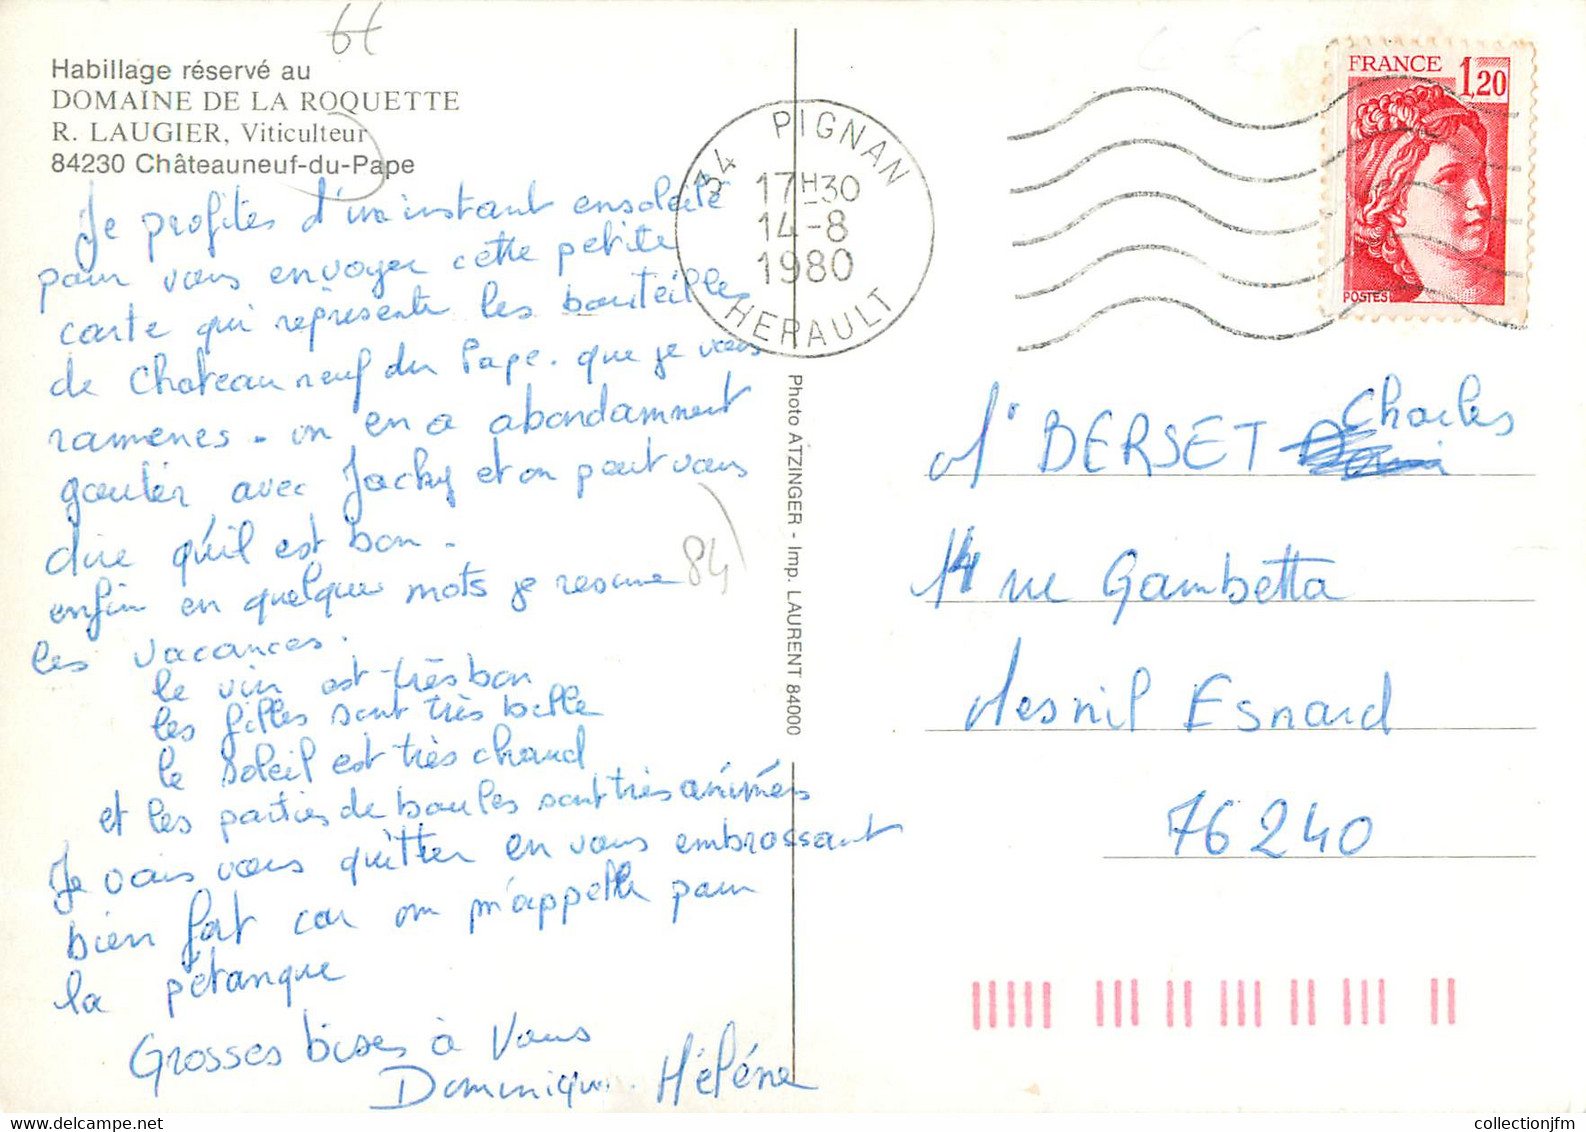 Habillage réservé au
DOMAINE DE LA ROQUETTE
R. LAUGIER, Viticulteur
84230 Châteauneuf-du-Pape
Je profites d'un instant ensoleité
pour vous envoyer cette petite
carte qui représente les bouteilles
de Chateau neuf du Pape. que je vous
ramènes - on en a abondamment
gouter avec Jacky et on peut vous
dire qu'il est bon -
enfin en quelque mots je resume
les vacances.
le vin est très bon
les filles sont très belle
le soleil est très chaud
et les parties de boules sont très animés
Je vais vous quitter en vous embrassant
bien fort car on m'appelle pour
la pétanque
Grosses bises à Vous
Dominique. Hélène
84
34 PIGNAN
17H30
14-8
1980
HERAULT
FRANCE 1,20
POSTES
Photo ATZINGER - Imp. LAURENT 84000
Mr BERSET Charles
14 rue Gambetta
Mesnil Esnard
76240
collectionjfm